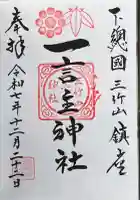 下総國三竹山鎮座
一言主神社
奉拝
令和七年十二月二十二日